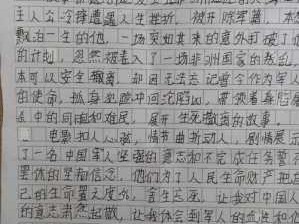 主人公冷锋遭遇人生挫折，被开除军籍，本
飘泊一生的他，一场突如其来的意外打破了他
的计划，忽然被卷入了一场非洲国家的叛乱，
本可以安全撤离，却因无法忘记曾今作为军人
的使命，孤身犯险冲回沦陷区，带领着身陷屠
杀中的同胞和难民，展开生死撤离的故事。
电影扣人心弦，情节曲折动人，剧情展示
了一名中国军人坚强的意志和不完成任务誓
里体的坚相信念，他们为了人民生命财产把自
己的生命置之度外，舍生忘死，让我对中国人
的意志肃然起敬，让我体会到军人的